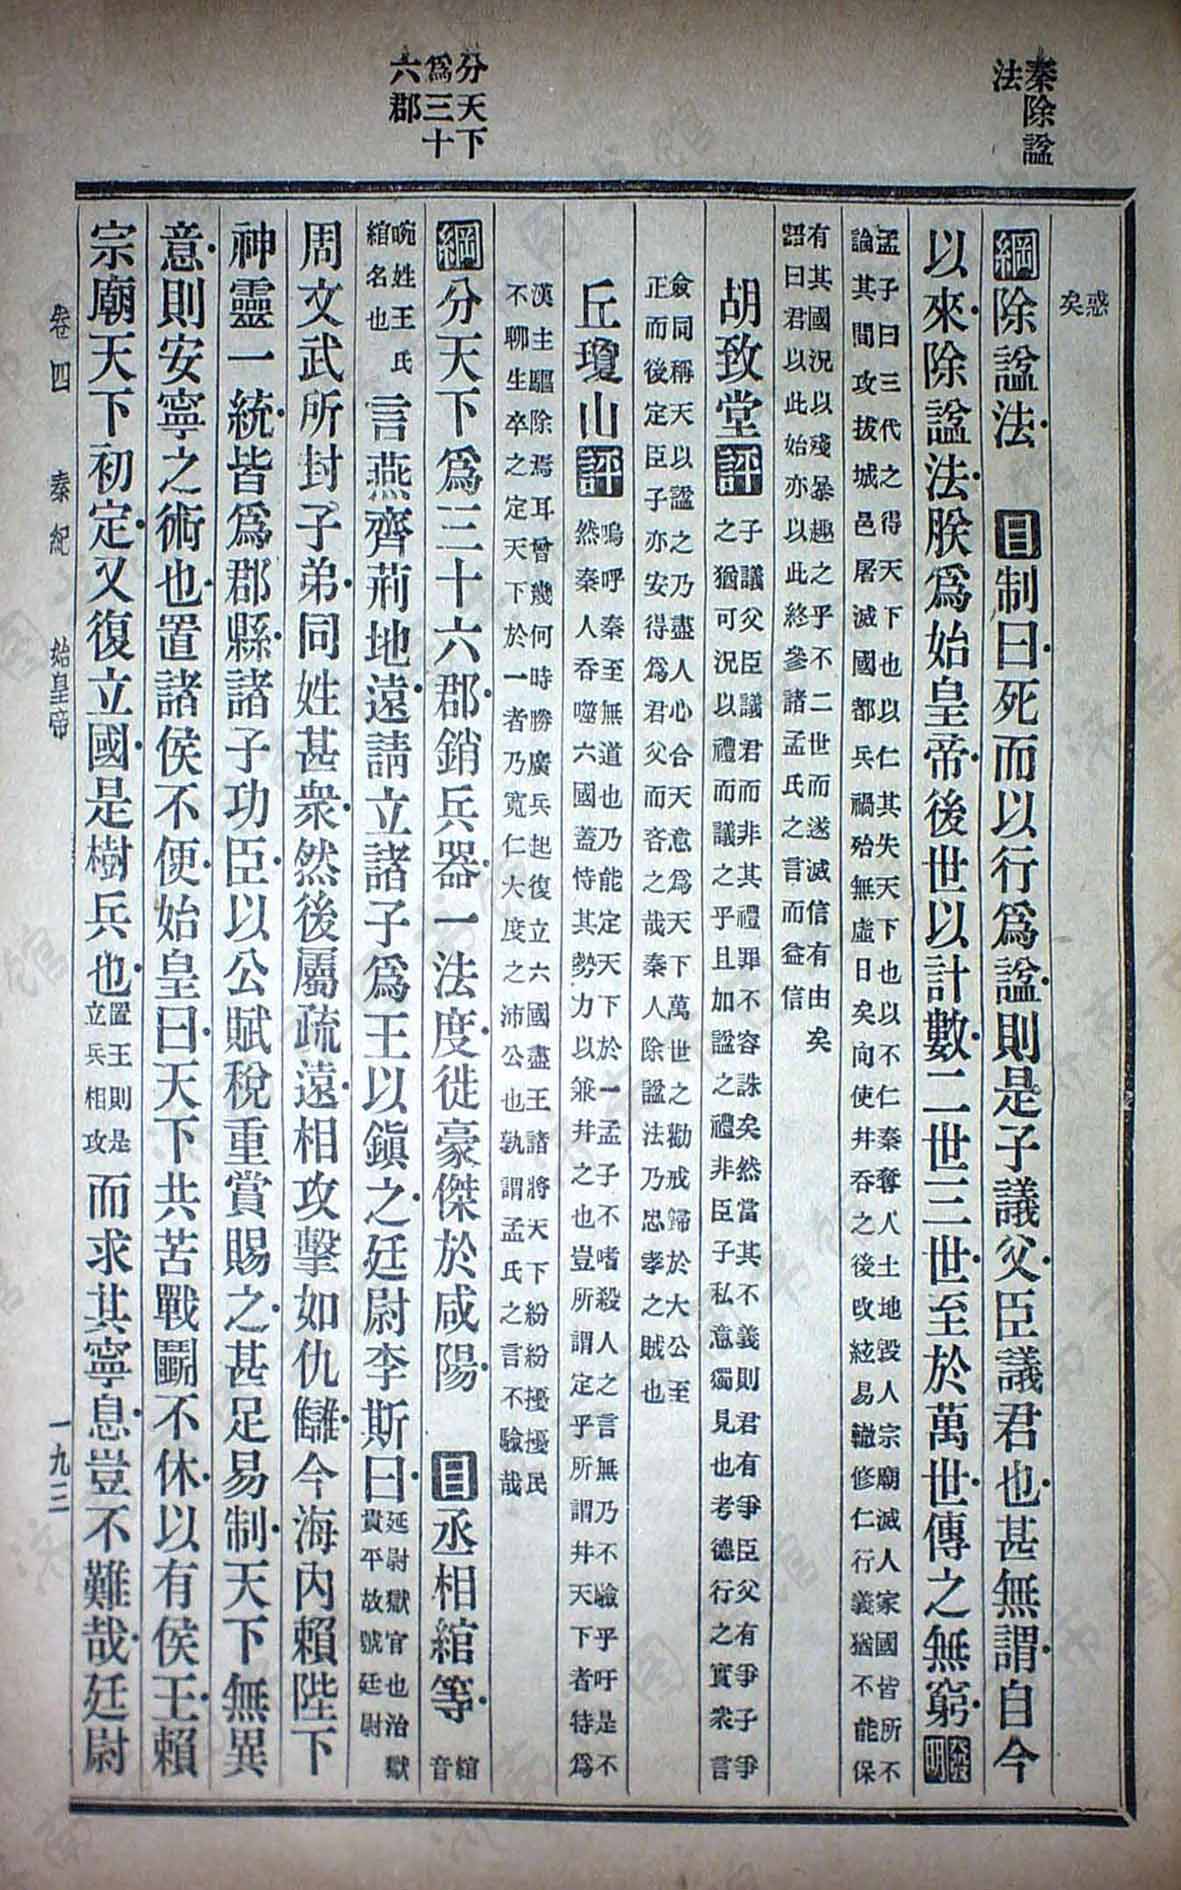 秦除諡
法
分天下
爲三十
六郡
惑
矣
綱除諡法　目制曰死而以行爲諡則是子議父臣議君也甚無謂自今
以來除諡法朕爲始皇帝後世以計數二世三世至於萬世傳之無窮發明
孟子曰三代之得天下也以仁其失天下也以不仁秦奪人土地毀人宗廟滅人家國皆所不
論其間攻拔城邑屠滅國都兵禍殆無虛日矣向使幷吞之後改絃易轍修仁行義猶不能保
有其國況以殘暴趣之乎不二世而遂滅信有由矣
語曰君以此始亦以此終參諸孟氏之言而益信
胡致堂評
子議父臣議君而非其禮罪不容誅矣然當其不義則君有爭臣父有爭子爭
之猶可況以禮而議之乎且加諡之禮非臣子私意獨見也考德行之實衆言
僉同稱天以諡之乃盡人心合天意爲天下萬世之勸戒歸於大公至
正而後定臣子亦安得爲君父而吝之哉秦人除諡法乃忠孝之賊也
丘瓊山評
嗚呼秦至無道也乃能定天下於一孟子不嗜殺人之言無乃不驗乎吁是不
然秦人吞噬六國蓋恃其勢力以兼幷之也豈所謂定乎所謂幷天下者特爲
漢主驅除焉耳曾幾何時勝廣兵起復立六國盡王諸將天下紛紛擾擾民
不聊生卒之定天下於一者乃寬仁大度之沛公也孰謂孟氏之言不驗哉
綱分天下爲三十六郡銷兵器一法度徙豪傑於咸陽　目丞相綰等綰音
婉姓王氏綰名也言燕齊荊地遠請立諸子爲王以鎮之廷尉李斯曰廷尉獄官也治獄貴平故號廷尉
周文武所封子弟同姓甚衆然後屬疏遠相攻擊如仇讎今海內賴陛下
神靈一統皆爲郡縣諸子功臣以公賦稅重賞賜之甚足易制天下無異
意則安寧之術也置諸侯不便始皇曰天下共苦戰鬭不休以有侯王賴
宗廟天下初定又復立國是樹兵也置王則是立兵相攻而求其寧息豈不難哉廷尉
卷四　秦紀　始皇帝　一九三